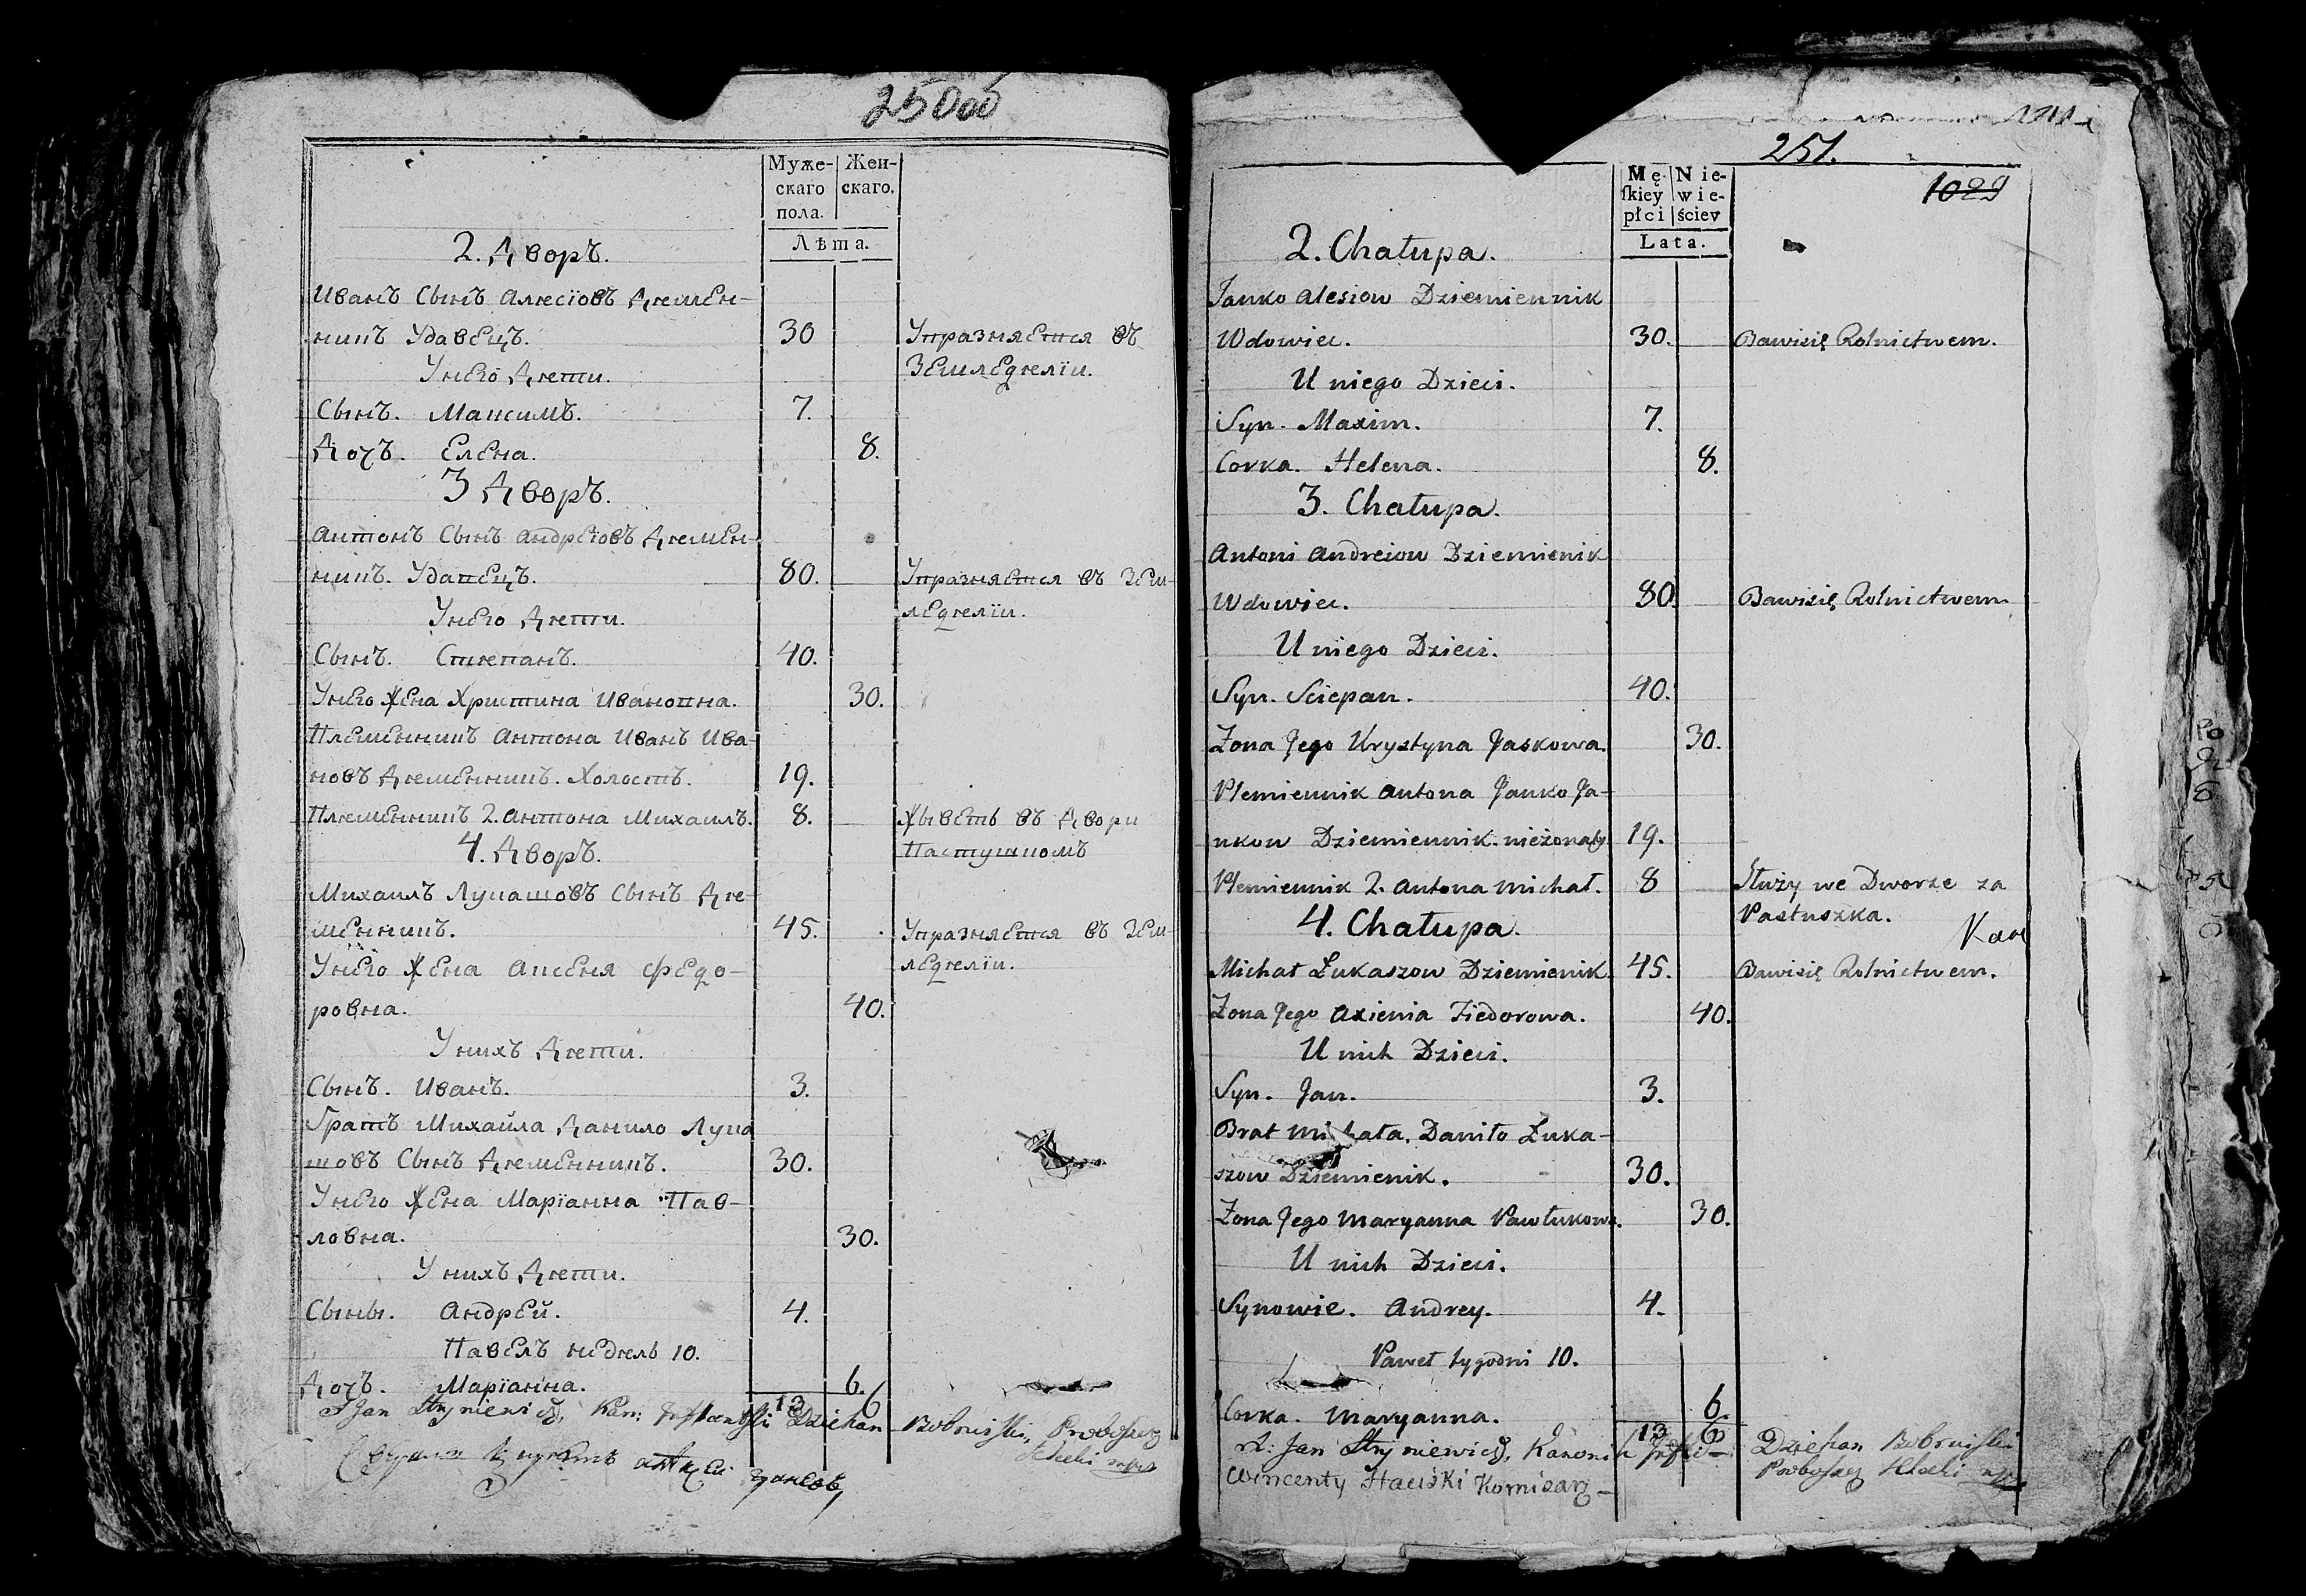 250
Муже-
скаго
пола.
Жен-
скаго.
Лѣта.
2. Дворъ.
Иванъ Сынъ Алесіовъ Дѣмен-
никъ Удавецъ. 30 Упразняется въ
Земледѣліи.
Унего Дѣти.
Сынъ. Максимъ. 7.
Дочъ. Елена. 8.
3 Дворъ.
Антонъ Сынъ Андреіовъ Дѣмен-
никъ. Удавецъ. 80. Упразняется въ Зем-
ледѣліи.
Унего Дѣти.
Сынъ. Стѣпанъ. 40.
Унего Жена Христина Ивановна. 30.
Племенникъ Антона Иванъ Ива-
новъ Дѣменникъ. Холостъ. 19.
Плѣменникъ 2. Антона Михаилъ. 8. Жыветь въ Двори
Пастушкомъ
4. Дворъ.
Михаилъ Лукашовъ Сынъ Дѣ-
менникъ. 45. Упразняется въ Зем-
ледѣліи.
Унего Жена Аксеня Федо-
ровна. 40.
Унихъ Дѣти.
Сынъ. Иванъ. 3.
Братъ Михайла Данило Лука
шовъ Сынъ Дѣменникъ. 30.
Унего Жена Маріанна Пав-
ловна. 30.
Унихъ Дѣти.
Сыны. Андрей. 4.
Павелъ недѣль 10.
Дочъ. Маріанна. 6.
13 6
Jan Kan: Dziekan Bobruiski, Proboszcz
251.
1029
Mę-
ſkiey
płci
Nie-
wie-
ściey
Lata.
2. Chałupa.
Janko Alesiow Dziemiennik
Wdowiec. 30. Bawisię Rolnictwem.
U niego Dzieci.
Syn. Maxim. 7.
Corka. Helena. 8.
3. Chałupa.
Antoni Andreiow Dziemienik
Wdowiec. 80. Bawisię Rolnictwem
U niego Dzieci.
Syn. Sciepan. 40.
Żona Jego Krystyna Jaskowa. 30.
Plemiennik Antona Janko Ja-
nkow Dziemiennik. nieżonaty. 19.
Plemiennik 2. Antona Michał. 8 Służy we Dworze za
Pastuszka.
4. Chałupa.
Michał Łukaszow Dziemienik. 45. Bawisię Rolnictwem.
Żona Jego Axienia Fiedorowa. 40.
U nich Dzieci.
Syn. Jan. 3.
Brat Michała. Daniło Łuka-
szow Dziemienik. 30.
Żona Jego Maryanna Pawlukowa. 30.
U nich Dzieci.
Synowie. Andrey. 4.
Paweł tygodni 10.
Corka. Maryanna. 6.
13 6
Jan Kanonik Dziekan Bobruiski
Proboszcz
Wincenty Komisarz